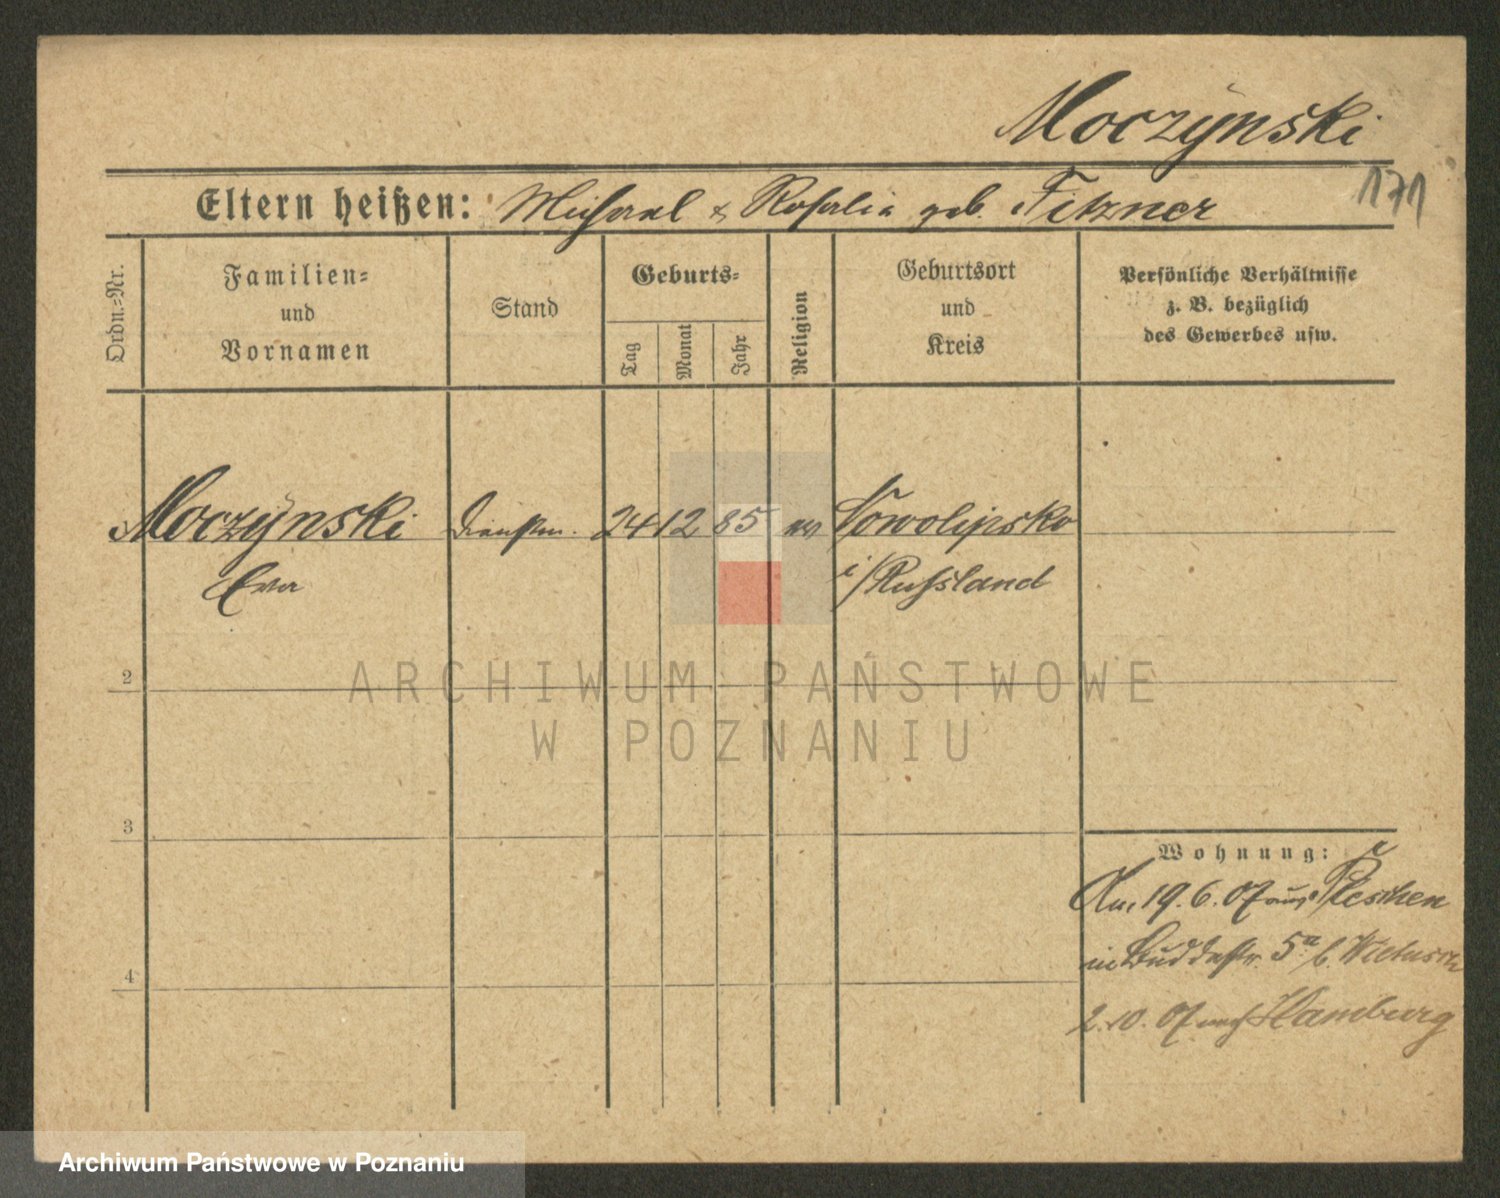 Moczynski
171
Eltern heißen: Michael & Rosalia geb. Fitzner
Ordn.-Nr.
Familien-
und
Vornamen
Stand
Geburts-
Tag
Monat
Jahr
Religion
Geburtsort
und
Kreis
Persönliche Verhältnisse
z. B. bezüglich
des Gewerbes usw.
Moczynski Dienstm. 24 12 85 ev Nowolipsko
Eva
i/Russland
2
3
4
Wohnung:
19.6.07 aus Pleschen
in 5a b.
2.10.07 nach Hamburg
ARCHIWUM PAŃSTWOWE
W POZNANIU
Archiwum Państwowe w Poznaniu